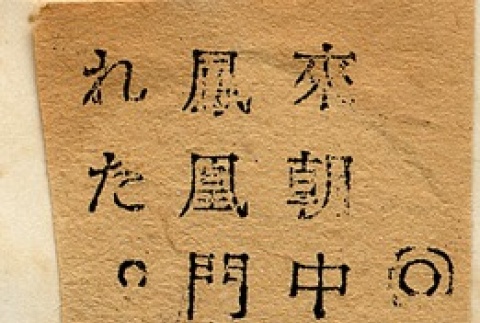 ◎
來朝中
鳳凰門
れた。